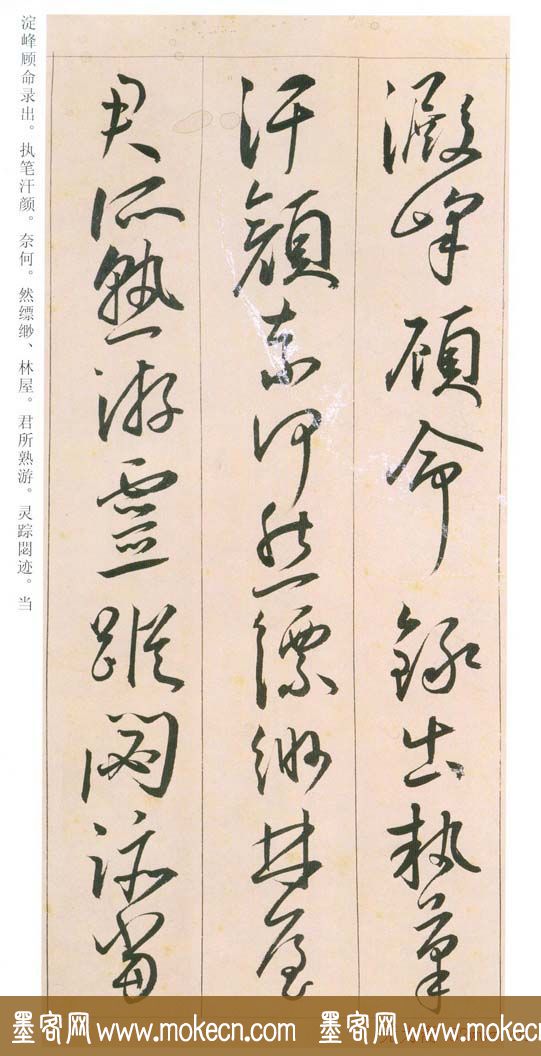 澱峰顾命録出执笔
汗顔奈何然縹緲林屋
君所熟游靈蹤閟迹當
淀峰顾命录出。执笔汗颜。奈何。然缥缈、林屋。君所熟游。灵踪閟迹。当
墨客网 www.mokecn.com 墨客网 www.mokecn.com